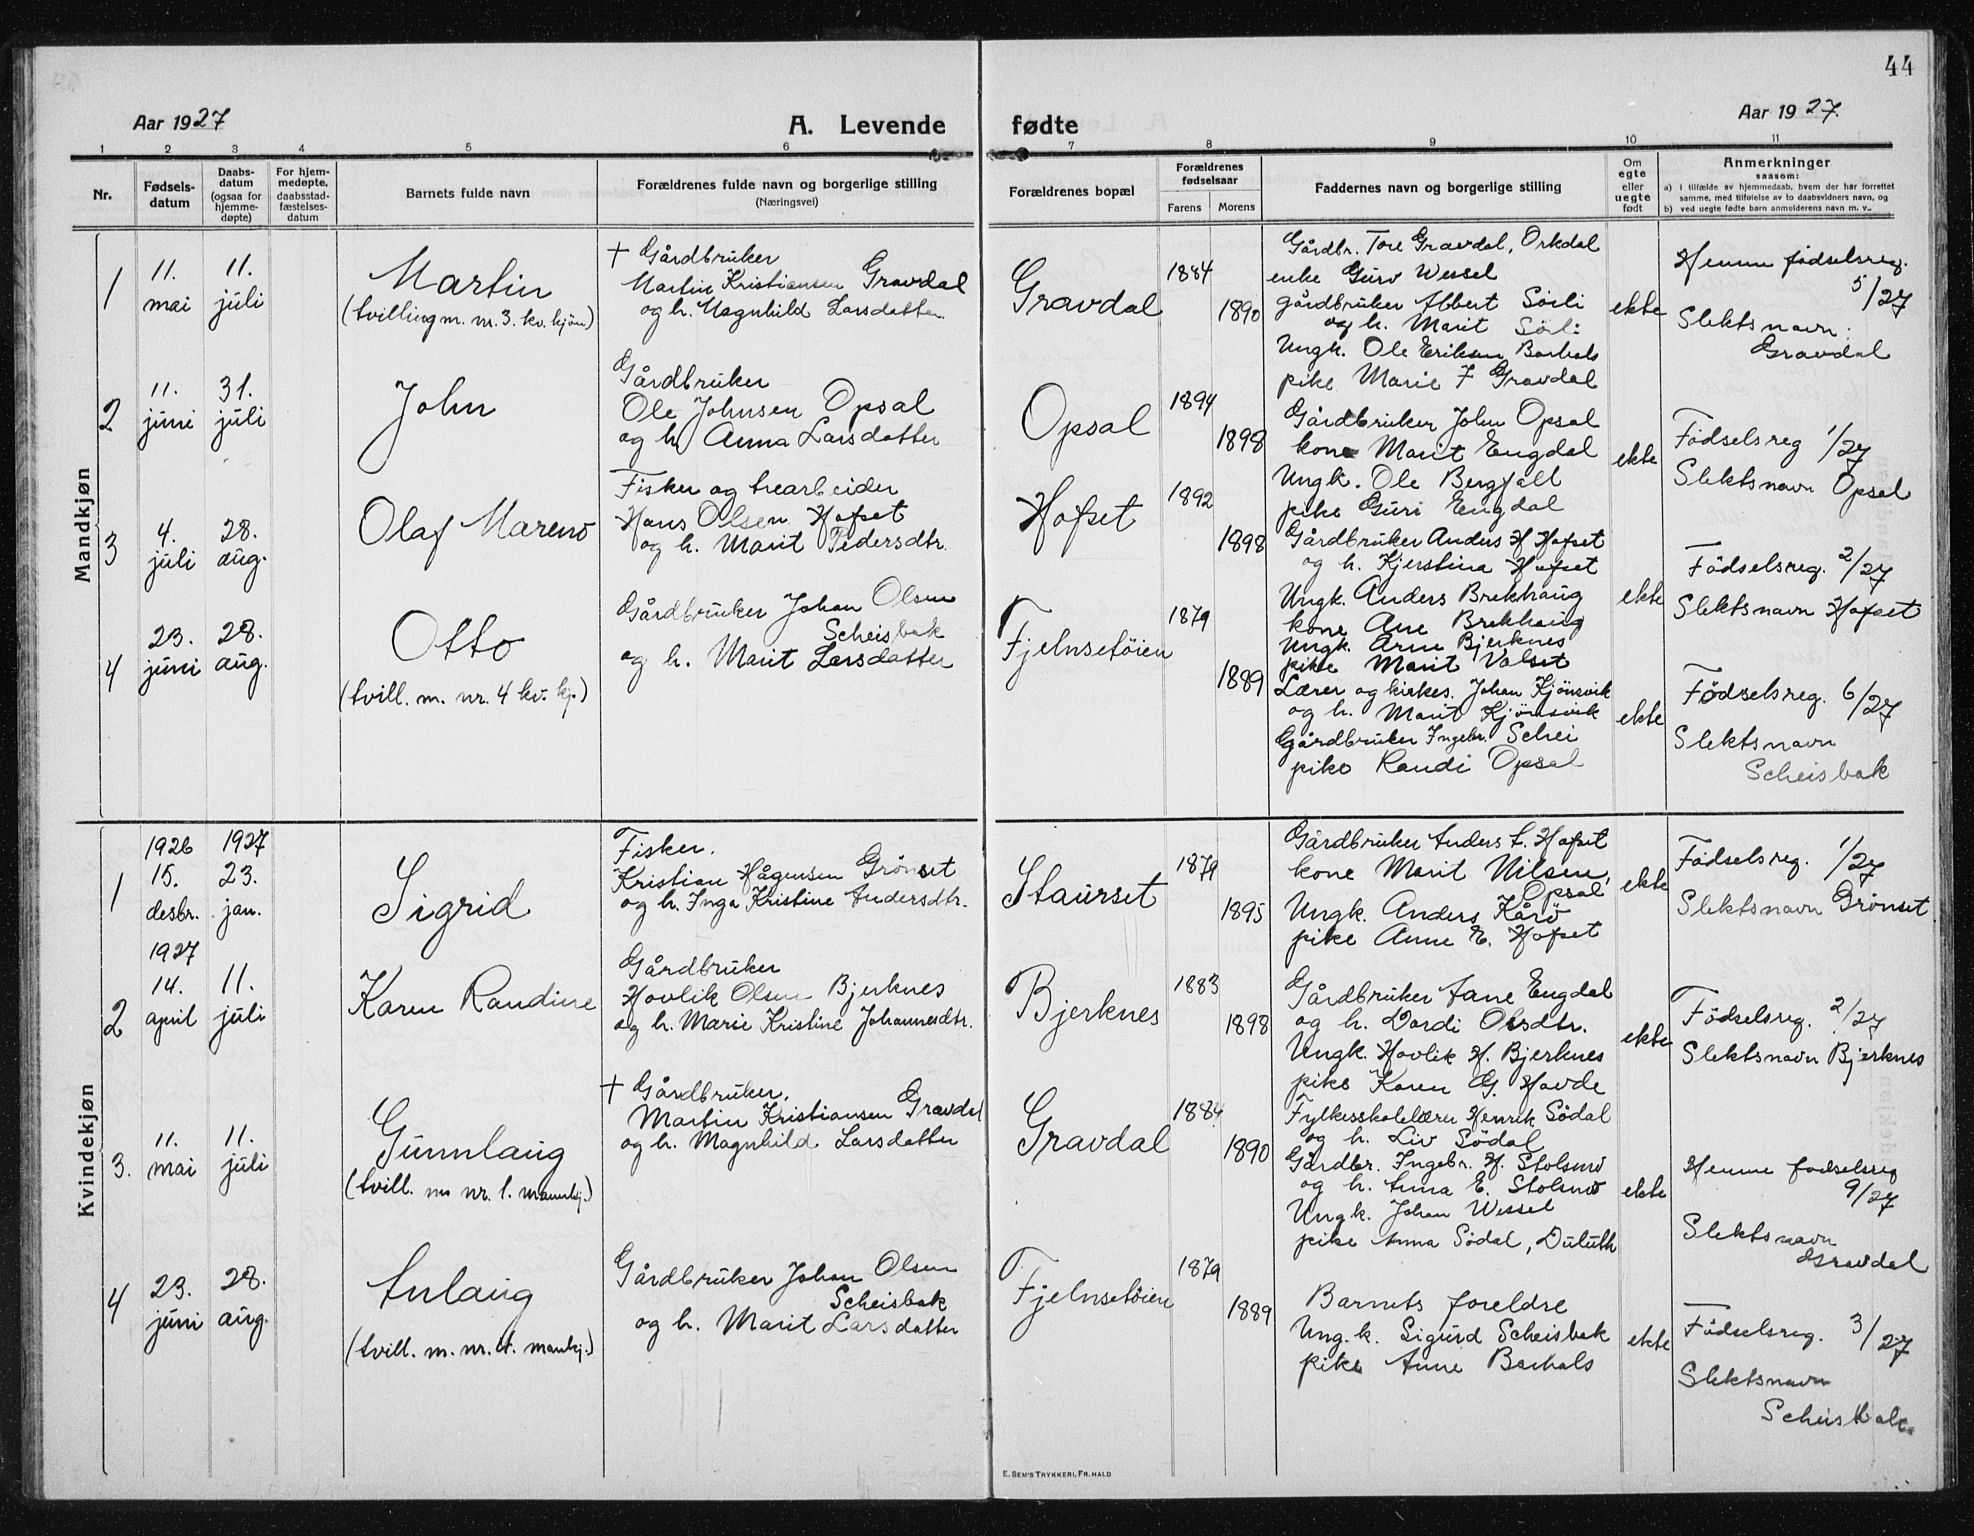 44
Aar 1927
A. Levende fødte
Aar 1927.
1 2 3 4 5 6 7 8 9 10 11
Nr.
Fødsels-
datum
Daabs-
datum
(ogsaa for
hjemme-
døpte)
For hjem-
medøpte,
daabsstad-
fæstelses-
datum
Barnets fulde navn
Forældrenes fulde navn og borgerlige stilling
(Næringsvei)
Forældrenes bopæl
Forældrenes
fødselsaar
Farens Morens
Faddernes navn og borgerlige stilling
Om
egte
eller
uegte
født
Anmerkninger
saasom:
a) i tilfælde av hjemmedaab, hvem der har forrettet
samme, med tilføielse av to daabsvidners navn, og
b) ved uegte fødte barn anmelderens navn m. v..
Mandkjøn
1
11.
mai
11.
juli
Martin
(tvilling m. nr. 3. kv. kjøn)
+ Gårdbruker
Martin Kristiansen Gravdal
og h. Magnhild Larsdatter
Gravdal
1884
1890
Gårdbr. Tore Gravdal, Orkdal
enke Guro Wessel
gårdbruker Albert Sörli
og h. Marit Sörli
Ungk. Ole Eriksen Barhals
pike Marie J Gravdal
ekte
Hemne födselsreg.
5/27
Slektsnavn:
Gravdal
2
11.
juni
31.
juli
John
Gårdbruker
Ole Johnsen Opsal
og h. Anna Larsdatter
Opsal
1894
1898
Gårdbruker John Opsal
kone Marit Engdal
Ungk. Ole Bergfall
pike Guri Engdal
ekte
Födselsreg 1/27
Slektsnavn Opsal
3
4.
juli
28.
aug.
Olaf Mareno
Fisker og trearbeider
Hans Olsen Hofset
og h. Marit Pedersdtr.
Hofset
1892
1898
Gårdbruker Anders H Hofset
og h. Kjerstina Hofset
Ungk. Anders Brekhaug
kone Ane Brekhaug
Ungk. Arne Bjerknes
pike Marit Valset
ekte
Födselsreg. 2/27
Slektsnavn Hofset
4
23.
juni
28.
aug.
Otto
(tvill. m. nr. 4 kv. kj.)
Gårdbruker Johan Olsen
Scheisbak
og h. Marit Larsdatter
Fjelnsetöien
1879
1889
Lærer og kirkes. Johan Kjönsvik
og h. Marit Kjönsvik
Gårdbruker Ingebr. Schei
pike Randi Opsal
ekte
Födselsreg. 6/27
Slektsnavn
Scheisbak
Kvindekjøn
1
1926
15.
desbr.
1927
23.
jan.
Sigrid
Fisker.
Kristian Hågensen Grönset
og h. Inga Kristine Andersdtr.
Staurset
1879
1895
Gårdbruker Anders L. Hofset
kone Marit Nilsen,
Opsal
Ungk. Anders Kårö
pike Anne E. Hofset
ekte
Födselsreg. 1/27
Slektsnavn Grönset
2
1927
14.
april
11.
juli
Karen Randine
Gårdbruker
Hovlik Olsen Bjerknes
og h. Marie Kristine Johannesdtr.
Bjerknes
1883
1898
Gårdbruker Aane Engdal
og h. Dordi Olsdtr.
Ungk. Hovlik H. Bjerknes
pike Karen G. Havde
ekte
Födselsreg. 2/27
Slektsnavn Bjerknes
3.
11.
mai
11.
juli
Gunnlaug
(tvill. m nr. 1. mannkj.)
+ Gårdbruker.
Martin Kristiansen Gravdal
og h. Magnhild Larsdatter
Gravdal
1884
1890
Fylkesskolelærer Henrik Södal
og h. Liv Södal
Gårdbr. Ingebr. H. Stolsmo
og h. Anna E. Stolsmo
Ungk. Johan Wessel
pike Anna Södal, Duluth
ekte
Hemne fødselsreg
9/27
Slektsnavn
Gravdal
4
23.
juni
28.
aug.
Anlaug
(tvill. m. nr. 4. mankj.)
Gårdbruker Johan Olsen
Scheisbak
og h. Marit Larsdatter
Fjelnsetöien
1879
1889
Barnets foreldre
Ung.k. Sigurd Scheisbak
pike Anne Barhals
ekte
Födselsreg. 3/27
Slektsnavn
Scheisbak
E. SEM'S TRYKKERI, FR. HALD